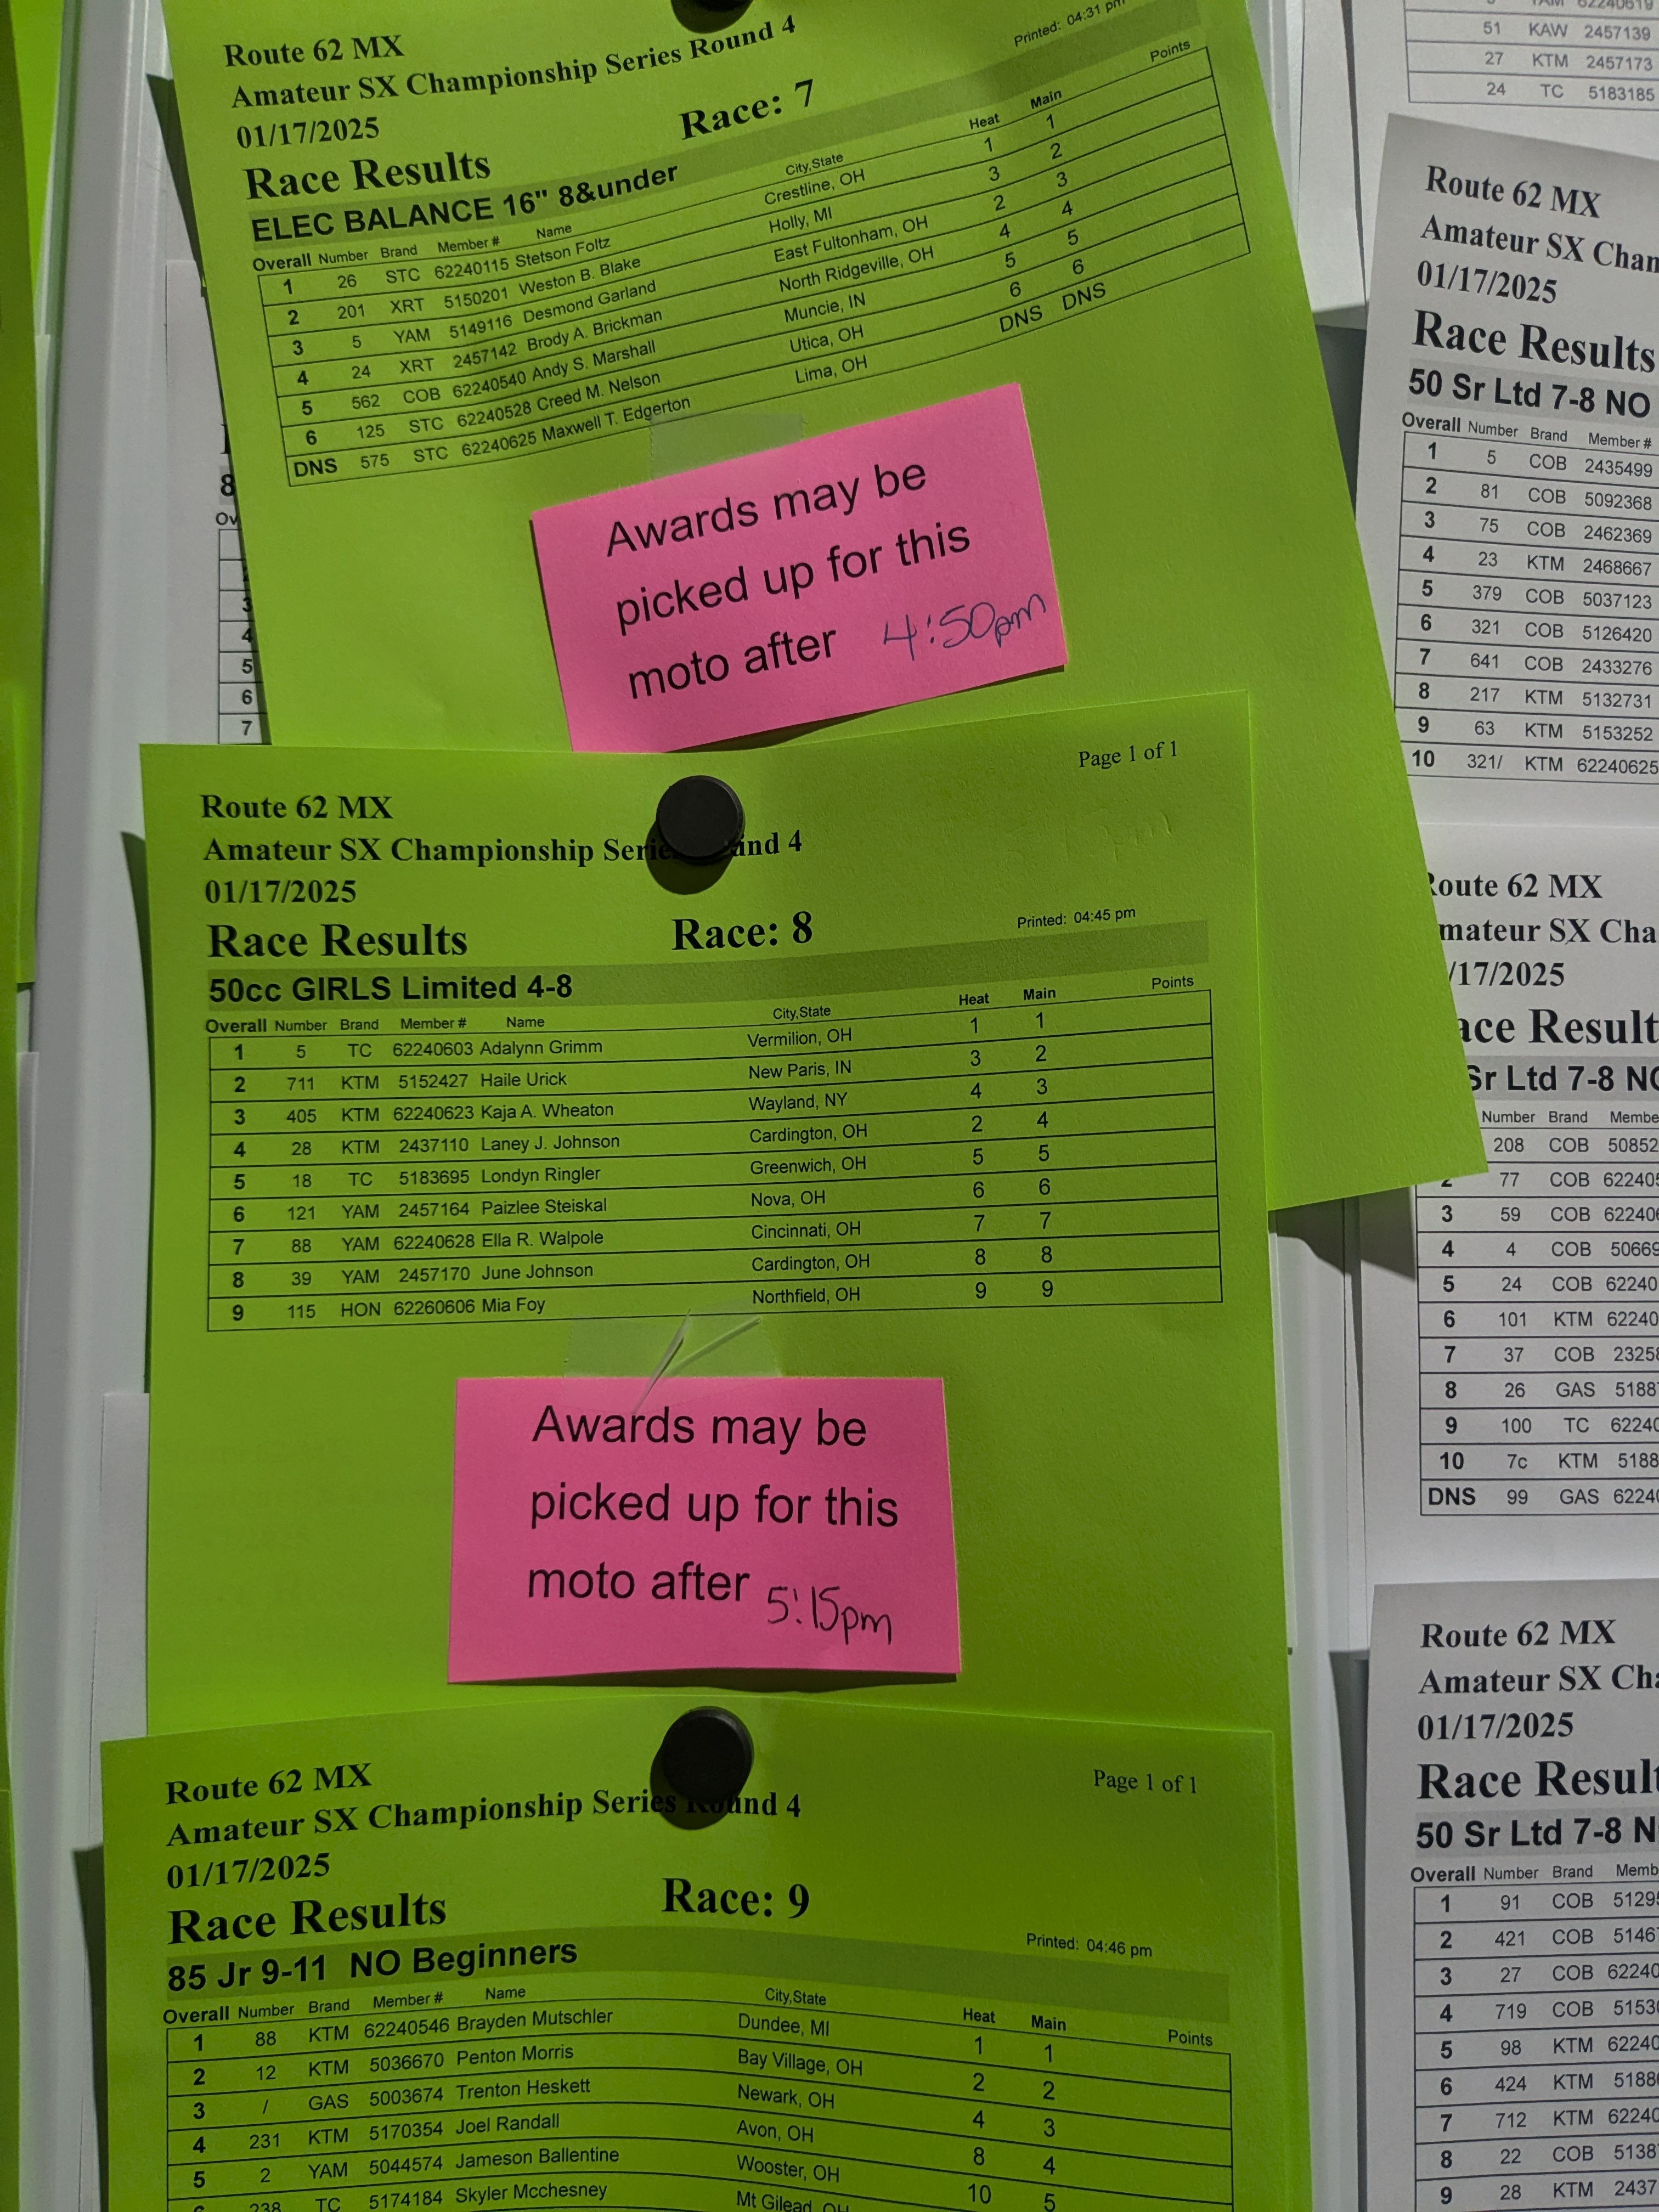 Route 62 MX
Amateur SX Championship Series Round 4
01/17/2025
Race Results
Race: 7
Printed: 04:31 pm
ELEC BALANCE 16" 8&under
Overall Number Brand Member # Name City,State Heat Main Points
1 26 STC 62240115 Stetson Foltz Crestline, OH 1 1
2 201 XRT 5150201 Weston B. Blake Holly, MI 3 2
3 5 YAM 5149116 Desmond Garland East Fultonham, OH 2 3
4 24 XRT 2457142 Brody A. Brickman North Ridgeville, OH 4 4
5 562 COB 62240540 Andy S. Marshall Muncie, IN 5 5
6 125 STC 62240528 Creed M. Nelson Utica, OH 6 6
DNS 575 STC 62240625 Maxwell T. Edgerton Lima, OH DNS DNS
Awards may be
picked up for this
moto after 4:50pm
Page 1 of 1
Route 62 MX
Amateur SX Championship Series Round 4
01/17/2025
Race Results
Race: 8
Printed: 04:45 pm
50cc GIRLS Limited 4-8
Overall Number Brand Member # Name City,State Heat Main Points
1 5 TC 62240603 Adalynn Grimm Vermilion, OH 1 1
2 711 KTM 5152427 Haile Urick New Paris, IN 3 2
3 405 KTM 62240623 Kaja A. Wheaton Wayland, NY 4 3
4 28 KTM 2437110 Laney J. Johnson Cardington, OH 2 4
5 18 TC 5183695 Londyn Ringler Greenwich, OH 5 5
6 121 YAM 2457164 Paizlee Steiskal Nova, OH 6 6
7 88 YAM 62240628 Ella R. Walpole Cincinnati, OH 7 7
8 39 YAM 2457170 June Johnson Cardington, OH 8 8
9 115 HON 62260606 Mia Foy Northfield, OH 9 9
Awards may be
picked up for this
moto after 5:15pm
Page 1 of 1
Route 62 MX
Amateur SX Championship Series Round 4
01/17/2025
Race Results
Race: 9
Printed: 04:46 pm
85 Jr 9-11 NO Beginners
Overall Number Brand Member # Name City,State Heat Main Points
1 88 KTM 62240546 Brayden Mutschler Dundee, MI 1 1
2 12 KTM 5036670 Penton Morris Bay Village, OH 2 2
3 / GAS 5003674 Trenton Heskett Newark, OH 4 3
4 231 KTM 5170354 Joel Randall Avon, OH 8 4
5 2 YAM 5044574 Jameson Ballentine Wooster, OH 10 5
238 TC 5174184 Skyler Mcchesney Mt Gilead, OH
8
3
4
5
6
7
51 KAW 2457139
27 KTM 2457173
24 TC 5183185
Route 62 MX
Amateur SX Cham
01/17/2025
Race Results
50 Sr Ltd 7-8 NO
Overall Number Brand Member #
1 5 COB 2435499
2 81 COB 5092368
3 75 COB 2462369
4 23 KTM 2468667
5 379 COB 5037123
6 321 COB 5126420
7 641 COB 2433276
8 217 KTM 5132731
9 63 KTM 5153252
10 321/ KTM 62240625
Route 62 MX
mateur SX Cha
/17/2025
ace Result
Sr Ltd 7-8 NO
Number Brand Membe
208 COB 50852
2 77 COB 62240
3 59 COB 62240
4 4 COB 50669
5 24 COB 62240
6 101 KTM 62240
7 37 COB 2325
8 26 GAS 5188
9 100 TC 6224
10 7c KTM 5188
DNS 99 GAS 6224
Route 62 MX
Amateur SX Cha
01/17/2025
Race Result
50 Sr Ltd 7-8 N
Overall Number Brand Memb
1 91 COB 5129
2 421 COB 5146
3 27 COB 62240
4 719 COB 5153
5 98 KTM 62240
6 424 KTM 5188
7 712 KTM 62240
8 22 COB 5138
9 28 KTM 2437